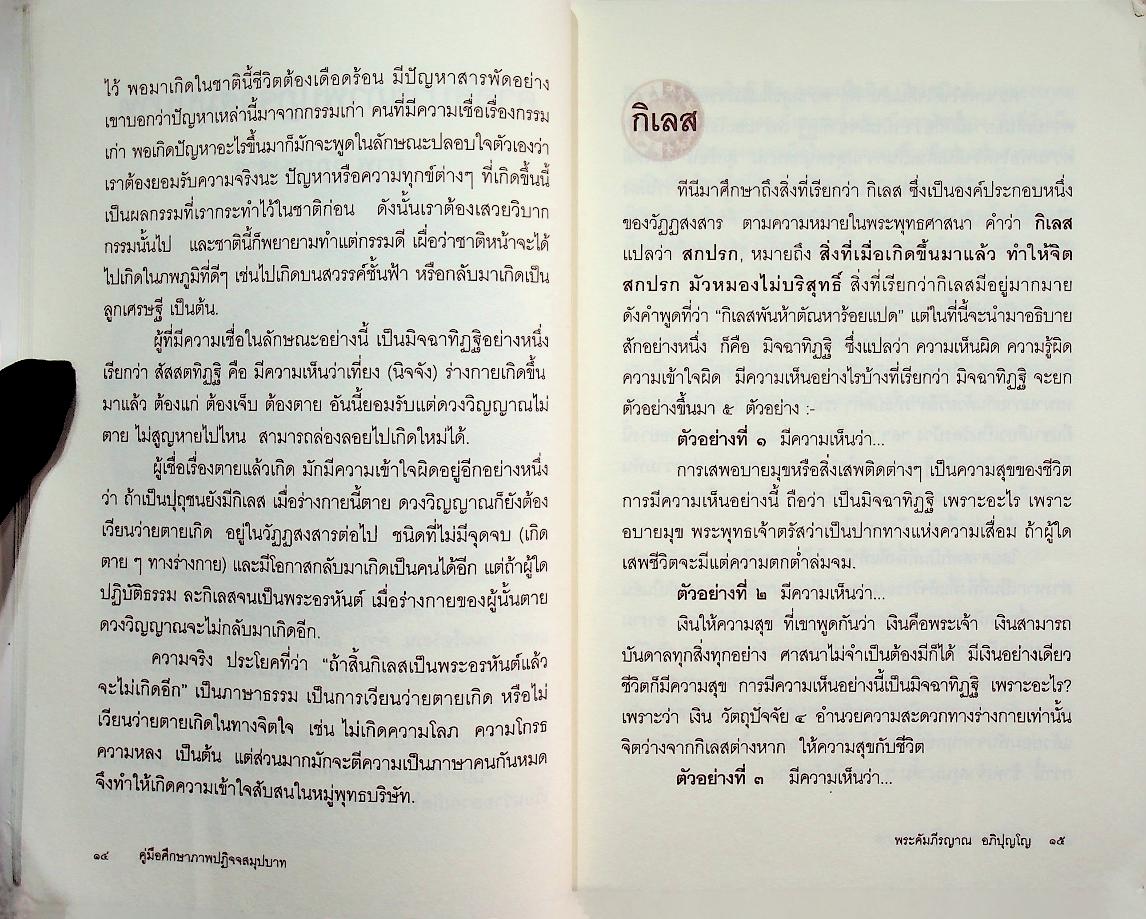 ไว้ พอมาเกิดในชาตินี้ชีวิตต้องเดือดร้อน มีปัญหาสารพัดอย่าง
เขาบอกว่าปัญหาเหล่านี้มาจากกรรมเก่า คนที่มีความเชื่อเรื่องกรรม
เก่า พอเกิดปัญหาอะไรขึ้นมาก็มักจะพูดในลักษณะปลอบใจตัวเองว่า
เราต้องยอมรับความจริงนะ ปัญหาหรือความทุกข์ต่างๆ ที่เกิดขึ้นนี้
เป็นผลกรรมที่เรากระทำไว้ในชาติก่อน ดังนั้นเราต้องเสวยวิบาก
กรรมนั้นไป และชาตินี้ก็พยายามทำแต่กรรมดี เผื่อว่าชาติหน้าจะได้
ไปเกิดในภพภูมิที่ดีๆ เช่นไปเกิดบนสวรรค์ชั้นฟ้า หรือกลับมาเกิดเป็น
ลูกเศรษฐี เป็นต้น.
ผู้ที่มีความเชื่อในลักษณะอย่างนี้ เป็นมิจฉาทิฏฐิอย่างหนึ่ง
เรียกว่า สัสสตทิฏฐิ คือ มีความเห็นว่าเที่ยง (นิจจัง) ร่างกายเกิดขึ้น
มาแล้ว ต้องแก่ ต้องเจ็บ ต้องตาย อันนี้ยอมรับแต่ดวงวิญญาณไม่
ตาย ไม่สูญหายไปไหน สามารถล่องลอยไปเกิดใหม่ได้.
ผู้เชื่อเรื่องตายแล้วเกิด มักมีความเข้าใจผิดอยู่อีกอย่างหนึ่ง
ว่า ถ้าเป็นปุถุชนยังมีกิเลส เมื่อร่างกายนี้ตาย ดวงวิญญาณก็ยังต้อง
เวียนว่ายตายเกิด อยู่ในวัฏฏสงสารต่อไป ชนิดที่ไม่มีจุดจบ (เกิด
ตาย ๆ ทางร่างกาย) และมีโอกาสกลับมาเกิดเป็นคนได้อีก แต่ถ้าผู้ใด
ปฏิบัติธรรม ละกิเลสจนเป็นพระอรหันต์ เมื่อร่างกายของผู้นั้นตาย
ดวงวิญญาณจะไม่กลับมาเกิดอีก.
ความจริง ประโยคที่ว่า “ถ้าสิ้นกิเลสเป็นพระอรหันต์แล้ว
จะไม่เกิดอีก” เป็นภาษาธรรม เป็นการเวียนว่ายตายเกิด หรือไม่
เวียนว่ายตายเกิดในทางจิตใจ เช่น ไม่เกิดความโลภ ความโกรธ
ความหลง เป็นต้น แต่ส่วนมากมักจะตีความเป็นภาษาคนกันหมด
จึงทำให้เกิดความเข้าใจสับสนในหมู่พุทธบริษัท.
๑๔ คู่มือศึกษาภาพปฏิจจสมุปบาท
กิเลส
ทีนี้มาศึกษาถึงสิ่งที่เรียกว่า กิเลส ซึ่งเป็นองค์ประกอบหนึ่ง
ของวัฏฏสงสาร ตามความหมายในพระพุทธศาสนา คำว่า กิเลส
แปลว่า สกปรก, หมายถึง สิ่งที่เมื่อเกิดขึ้นมาแล้ว ทำให้จิต
สกปรก มัวหมองไม่บริสุทธิ์ สิ่งที่เรียกว่ากิเลสมีอยู่มากมาย
ดังคำพูดที่ว่า “กิเลสพันห้าตัณหาร้อยแปด” แต่ในที่นี้จะนำมาอธิบาย
สักอย่างหนึ่ง ก็คือ มิจฉาทิฏฐิ ซึ่งแปลว่า ความเห็นผิด ความรู้ผิด
ความเข้าใจผิด มีความเห็นอย่างไรบ้างที่เรียกว่า มิจฉาทิฏฐิ จะยก
ตัวอย่างขึ้นมา ๕ ตัวอย่าง :-
ตัวอย่างที่ ๑ มีความเห็นว่า...
การเสพอบายมุขหรือสิ่งเสพติดต่างๆ เป็นความสุขของชีวิต
การมีความเห็นอย่างนี้ ถือว่า เป็นมิจฉาทิฏฐิ เพราะอะไร เพราะ
อบายมุข พระพุทธเจ้าตรัสว่าเป็นปากทางแห่งความเสื่อม ถ้าผู้ใด
เสพชีวิตจะมีแต่ความตกต่ำล่มจม.
ตัวอย่างที่ ๒ มีความเห็นว่า...
เงินให้ความสุข ที่เขาพูดกันว่า เงินคือพระเจ้า เงินสามารถ
บันดาลทุกสิ่งทุกอย่าง ศาสนาไม่จำเป็นต้องมีก็ได้ มีเงินอย่างเดียว
ชีวิตก็มีความสุข การมีความเห็นอย่างนี้เป็นมิจฉาทิฏฐิ เพราะอะไร?
เพราะว่า เงิน วัตถุปัจจัย ๔ อำนวยความสะดวกทางร่างกายเท่านั้น
จิตว่างจากกิเลสต่างหาก ให้ความสุขกับชีวิต
ตัวอย่างที่ ๓ มีความเห็นว่า...
พระคัมภีรญาณ อภิปุญโญ ๑๕